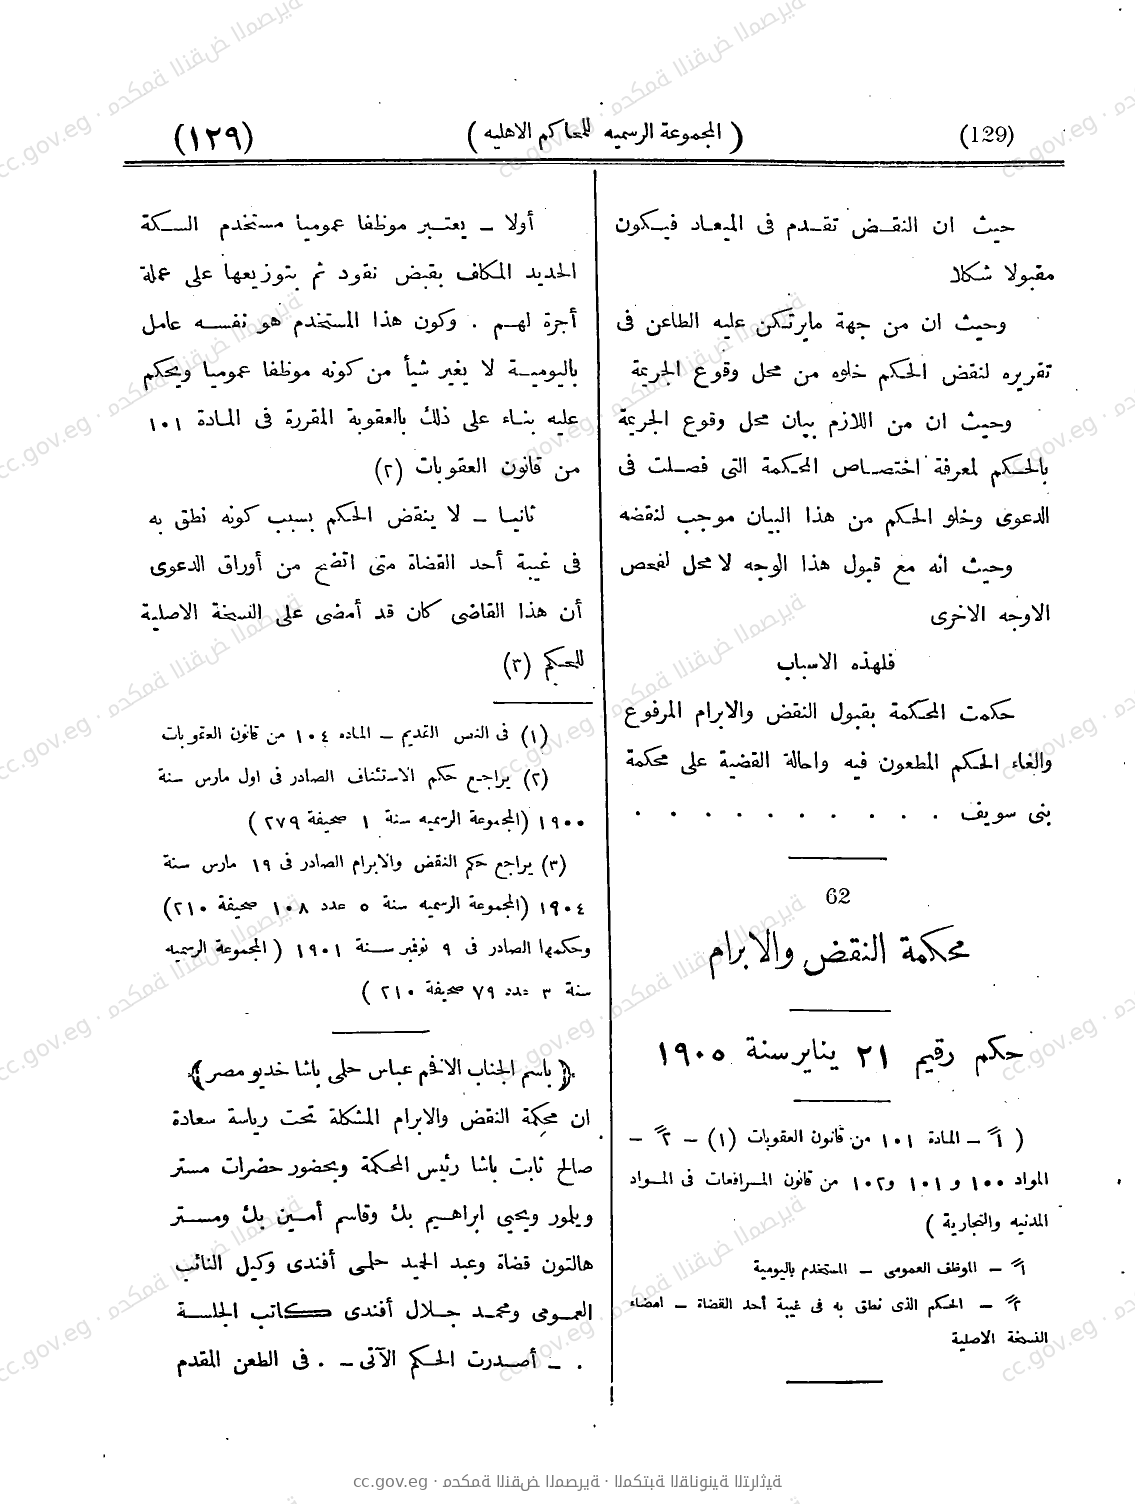 (129) ( المجموعة الرسميه للمحاكم الاهليه ) (١٢٩)
حيث ان النقض تقدم فى الميعاد فيكون
مقبولا شكلا
وحيث ان من جهة مايرتكن عليه الطاعن فى
تقريره لنقض الحكم خلوه من محل وقوع الجريمة
وحيث ان من اللازم بيان محل وقوع الجريمة
بالحكم لمعرفة اختصاص المحكمة التى فصلت فى
الدعوى وخلو الحكم من هذا البيان موجب لنقضه
وحيث انه مع قبول هذا الوجه لا محل لفحص
الاوجه الاخرى
فلهذه الاسباب
حكمت المحكمة بقبول النقض والابرام المرفوع
والغاء الحكم المطعون فيه واحالة القضية على محكمة
بنى سويف . . . . . . . . . .
62
محكمة النقض والابرام
حكم رقيم ٢١ يناير سنة ١٩٠٥
( ١ً – المادة ١٠١ من قانون العقوبات (١) – ٢ً –
المواد ١٠٠ و ١٠١ و١٠٢ من قانون المرافعات فى المواد
المدنيه والتجارية )
١ً – الموظف العمومى – المستخدم باليومية
٢ً – الحكم الذى نطق به فى غيبة أحد القضاة – امضاء
النسخة الاصلية
أولا – يعتبر موظفا عموميا مستخدم السكة
الحديد المكلف بقبض نقود ثم بتوزيعها على عملة
أجرة لهم . وكون هذا المستخدم هو نفسه عامل
باليومية لا يغير شيأ من كونه موظفا عموميا ويحكم
عليه بناء على ذلك بالعقوبة المقررة فى المادة ١٠١
من قانون العقوبات (٢)
ثانيا – لا ينقض الحكم بسبب كونه نطق به
فى غيبة أحد القضاة متى اتضح من أوراق الدعوى
أن هذا القاضى كان قد أمضى على النسخة الاصلية
للحكم (٣)
(١) فى النص القديم – الماده ١٠٤ من قانون العقوبات
(٢) يراجع حكم الاستئناف الصادر فى اول مارس سنة
١٩٠٠ (المجموعة الرسميه سنة ١ صحيفة ٢٧٩ )
(٣) يراجع حكم النقض والابرام الصادر فى ١٩ مارس سنة
١٩٠٤ (المجموعة الرسميه سنة ٥ عدد ١٠٨ صحيفة ٢١٠)
وحكمها الصادر فى ٩ نوفمبر سنة ١٩٠١ ( المجموعة الرسميه
سنة ٣ عدد ٧٩ صحيفة ٢١٠ )
﴿ باسم الجناب الافخم عباس حلمى باشا خديو مصر ﴾
ان محكمة النقض والابرام المشكلة تحت رياسة سعادة
صالح ثابت باشا رئيس المحكمة وبحضور حضرات مستر
ويلمور ويحيى ابراهيم بك وقاسم أمين بك ومستر
هالتون قضاة وعبد الحميد حلمى أفندى وكيل النائب
العمومى ومحمد جلال أفندى كاتب الجلسة
. – أصدرت الحكم الآتى – . فى الطعن المقدم
cc.gov.eg · محكمة النقض المصرية · المكتبة القانونية التراثية